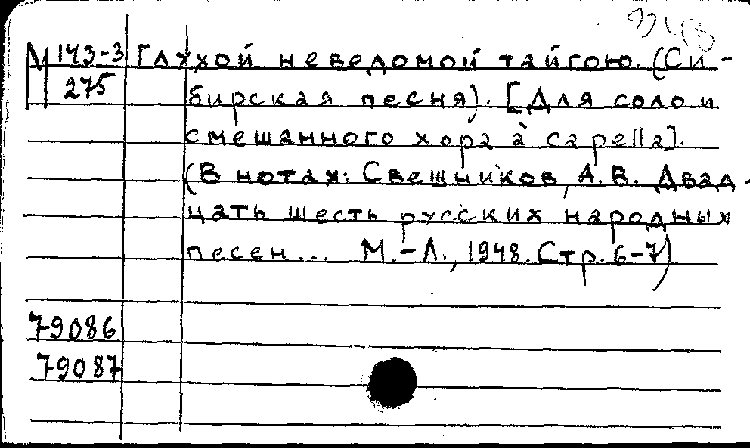 М 143-3 Глухой неведомой тайгою. (Си-
275 бирская песня). [Для соло и
смешанного хора à capella].
(В нотах: Свешников, А.В. Двад-
цать шесть русских народных
песен... М.-Л., 1948. Стр. 6-7)
79086
79087